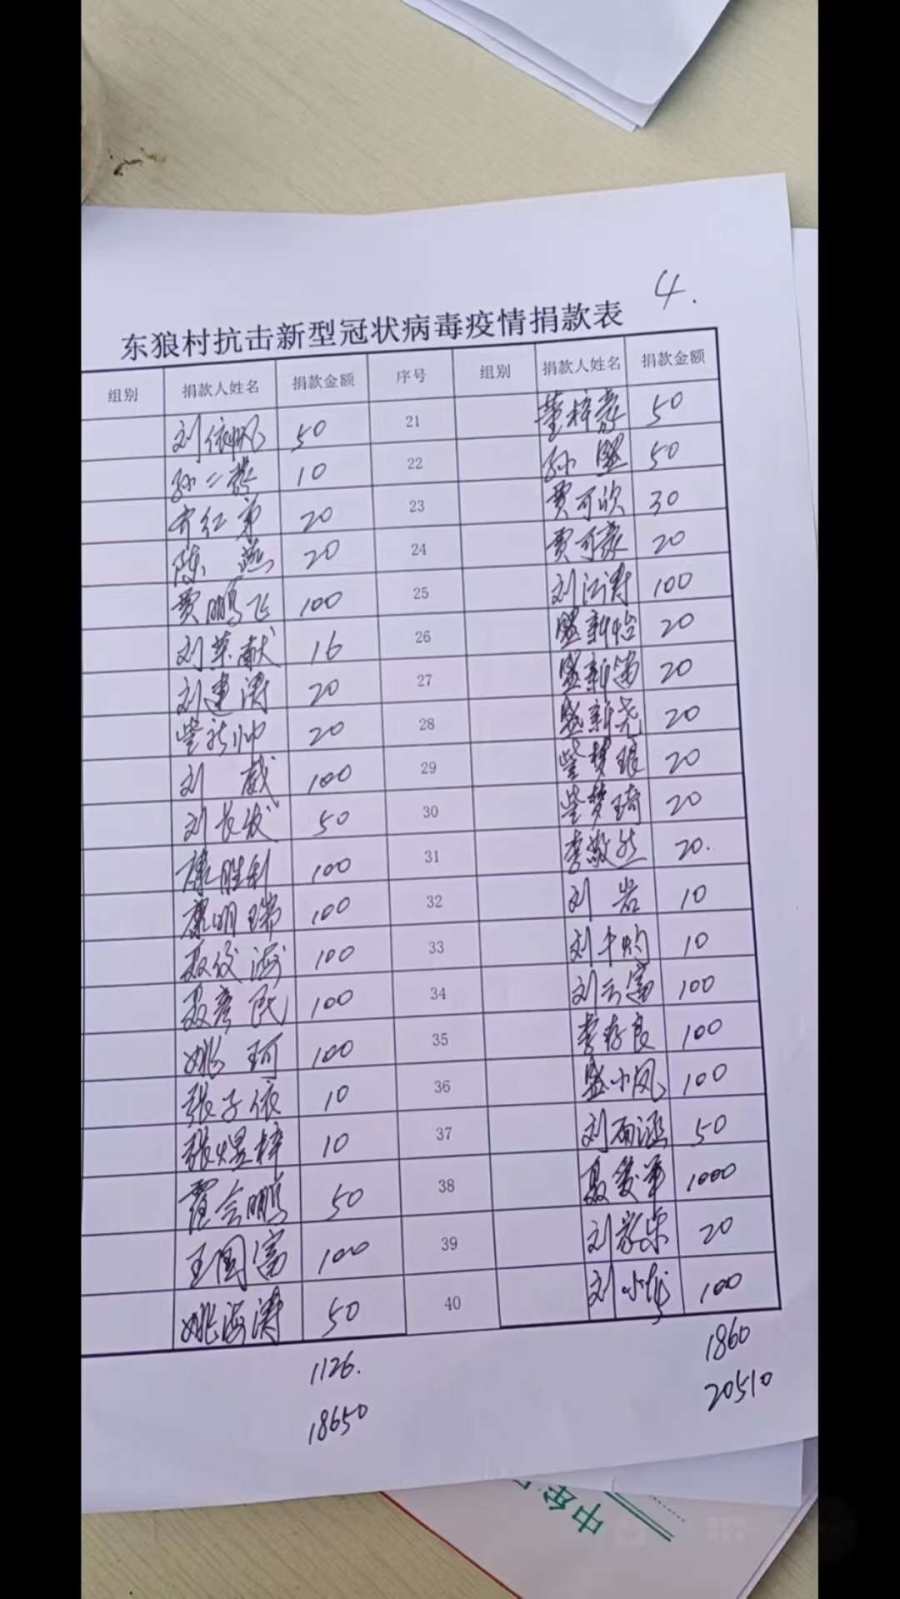 4.
东狼村抗击新型冠状病毒疫情捐款表
组别 捐款人姓名 捐款金额 序号 组别 捐款人姓名 捐款金额
刘依帆 50 21 董梓豪 50
孙二 10 22 孙盟 50
齐红弟 20 23 贾可欣 30
陈燕 20 24 贾可豪 20
贾鹏飞 100 25 刘江涛 100
刘荣献 16 26 盛新怡 20
刘建涛 20 27 盛新笛 20
柴新帅 20 28 盛新尧 20
刘威 100 29 柴梦琅 20
刘长波 50 30 柴梦琦 20
康胜利 100 31 李敬然 20.
康明瑞 100 32 刘岩 10
聂俊海 100 33 刘千灼 10
聂彦民 100 34 刘云富 100
姚珂 100 35 李存良 100
张子依 10 36 盛小凤 100
张煜梓 10 37 刘雨涵 50
霍会鹏 50 38 聂爱军 1000
王国富 100 39 刘敬乐 20
姚海涛 50 40 刘小 100
1126. 1860
18650 20510
中